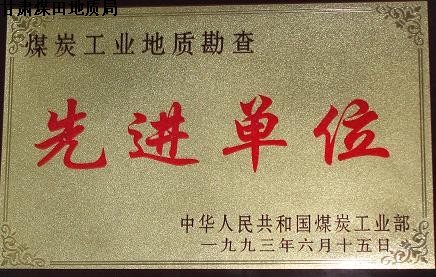 甘肃煤田地质局
煤炭工业地质勘查
先进单位
中华人民共和国煤炭工业部
一九九三年六月十五日